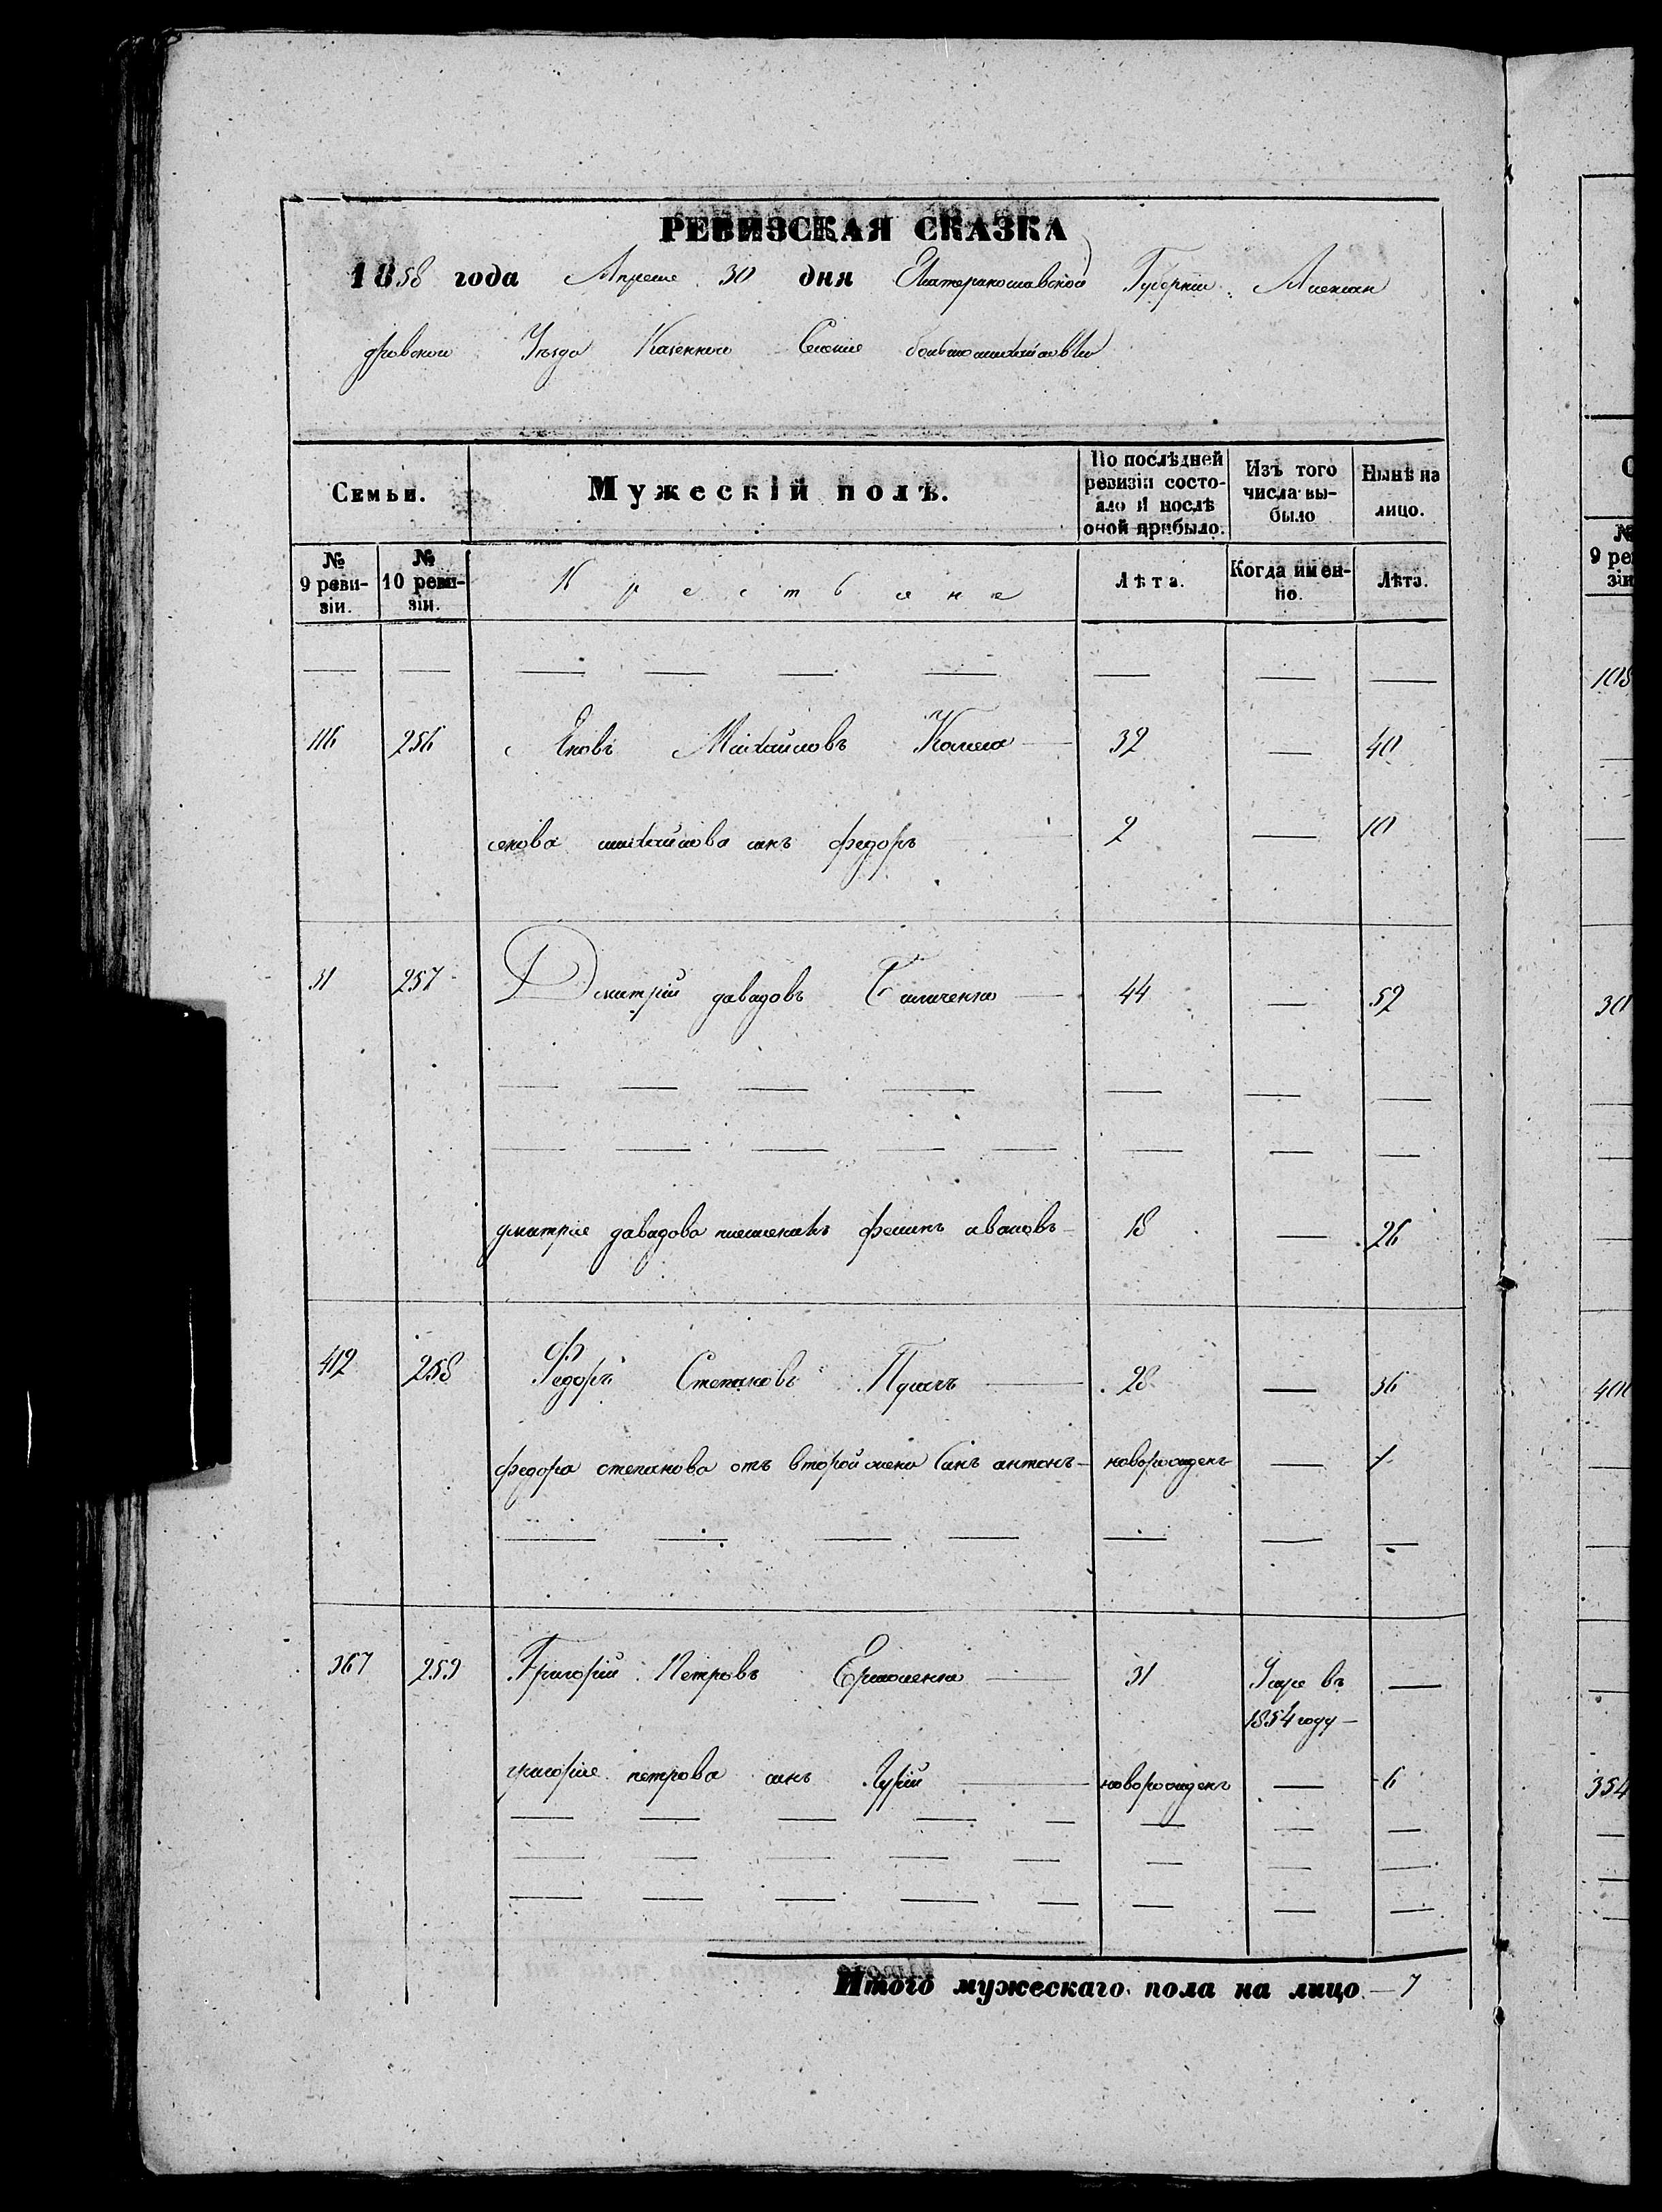 РЕВИЗСКАЯ СКАЗКА
1858 года Апреле 30 дня Екатеринославской Губернии Алексан
дровскои Уезда Казенного Селение большомихайловки
Семьи.
Мужескій полъ.
По послѣдней ревизіи состояло и послѣ оной прибыло.
Изъ того числа выбыло
Нынѣ на лицо.
№ 9 ревизіи.
№ 10 ревизіи.
Крестьяне
Лѣта.
Когда именно.
Лѣта.
116 256 Яковъ Михайловъ 32 — 40
якова михайлова синъ федоръ 2 — 10
31 257 Дмитрій давидовъ 44 — 52
дмитрие давидова племеникъ ивановъ 18 — 26
412 258 Федоръ Степановъ Пугачъ 28 — 36
федора степанова отъ второй жени синъ антонъ новорожденъ — 1
367 259 Григорій Петровъ Ермоленко 31 Умре въ —
1854 году
григорие петрова синъ Гурій новорожденъ — 6
Итого мужескаго пола на лицо — 7
С
№
9 ре
зі
108
30
400
354